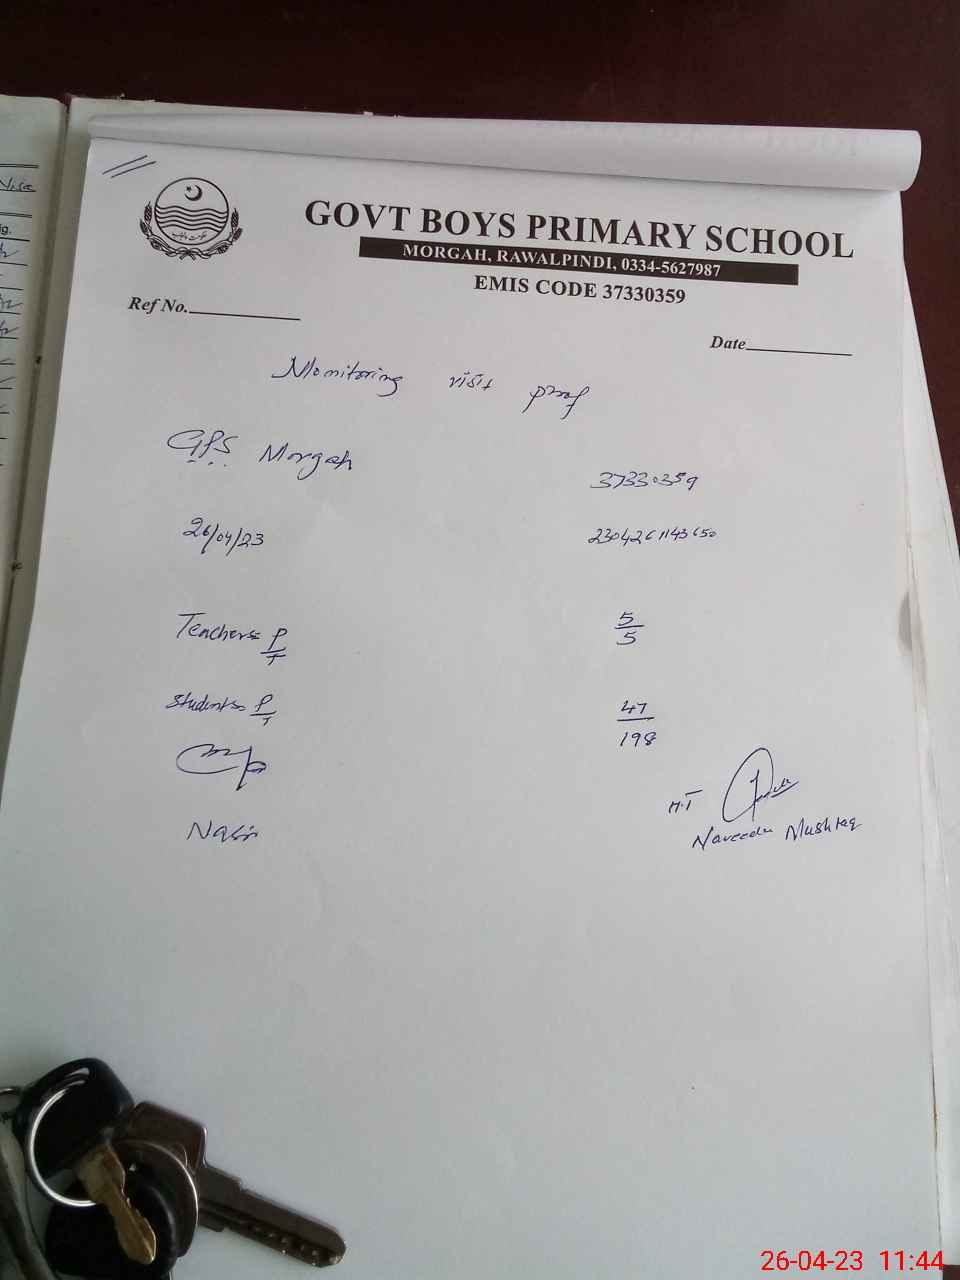 GOVT BOYS PRIMARY SCHOOL
MORGAH, RAWALPINDI, 0334-5627987
EMIS CODE 37330359
Ref No.
Date
Monitoring visit proof
GPS Morgah
37330359
26/04/23
2304261143650
Teachers= P/T
5/5
Students= P/T
47/198
H.T
Nasir
Naveeda Mushtaq
26-04-23 11:44